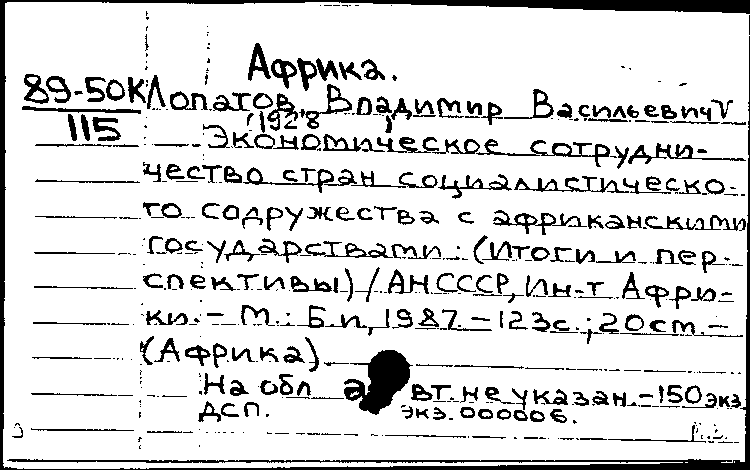 Африка.
89-50К Лопатов, Владимир Васильевич V
115 (1928 )
Экономическое сотрудни-
чество стран социалистическо-
го содружества с африканскими
государствами: (Итоги и пер-
спективы) / АН СССР, Ин-т Афри-
ки. - М.: Б.и, 1987. - 123с.; 20см. -
(Африка)
На обл авт. не указан. - 150 экз.
ДСП. экз. 000006.